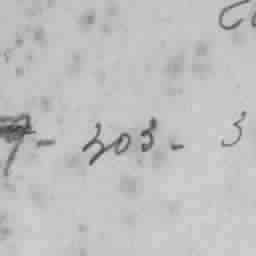 7 - 303 - 3